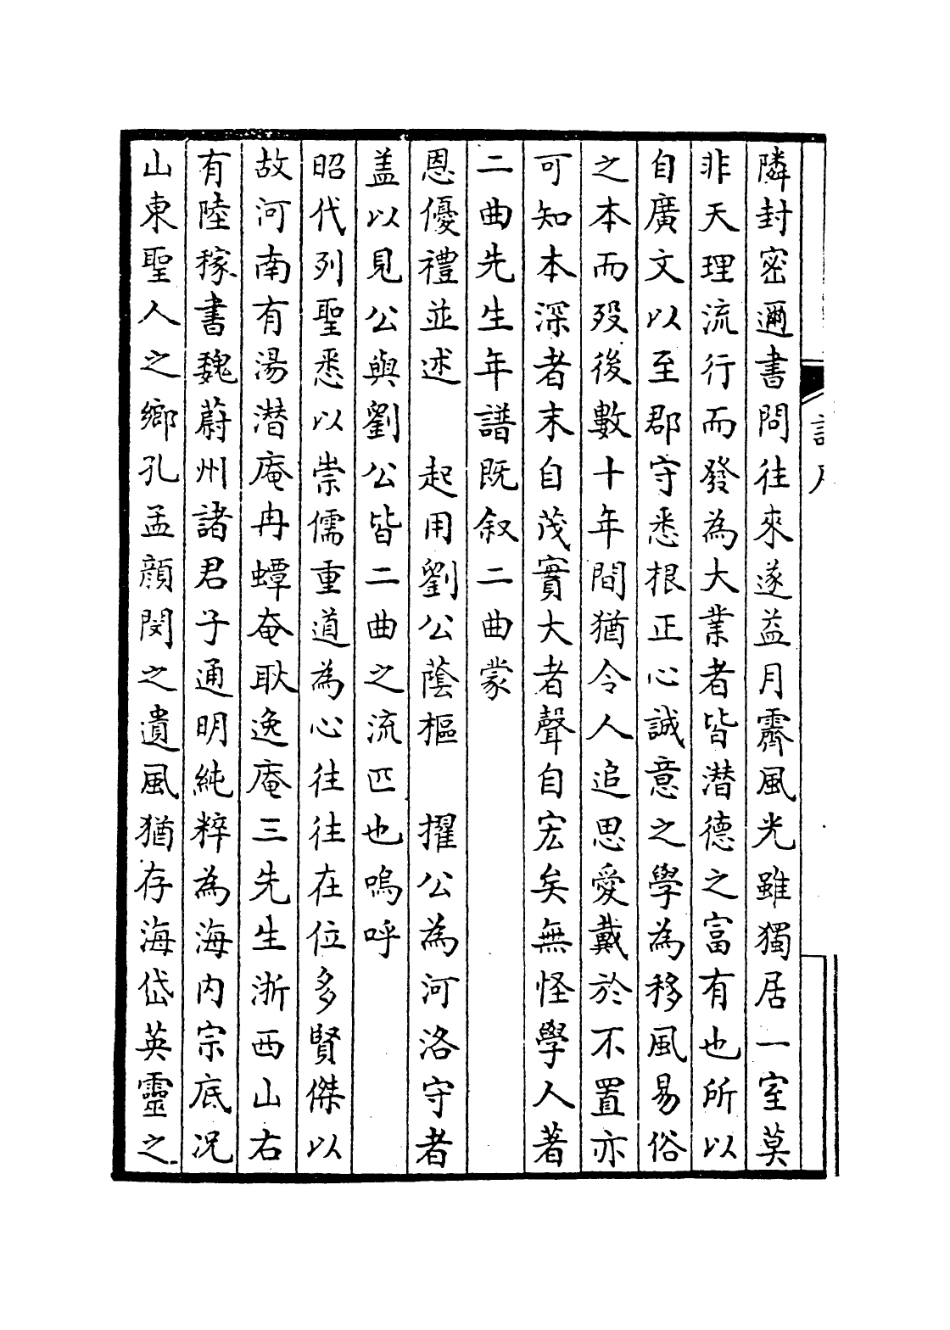 隣封密邇書問往來遂益月霽風光雖獨居一室莫
非天理流行而發為大業者皆潜德之富有也所以
自廣文以至郡守悉根正心誠意之學為移風易俗
之本而歿後數十年間猶令人追思愛戴於不置亦
可知本深者末自茂實大者聲自宏矣無怪學人著
二曲先生年譜既叙二曲蒙
恩優禮並述　起用劉公蔭樞　擢公為河洛守者
盖以見公與劉公皆二曲之流匹也嗚呼
昭代列聖悉以崇儒重道為心往往在位多賢傑以
故河南有湯潜庵冉蟫奄耿逸庵三先生浙西山右
有陸稼書魏蔚州諸君子通明純粹為海内宗底况
山東聖人之鄉孔孟顔閔之遺風猶存海岱英靈之